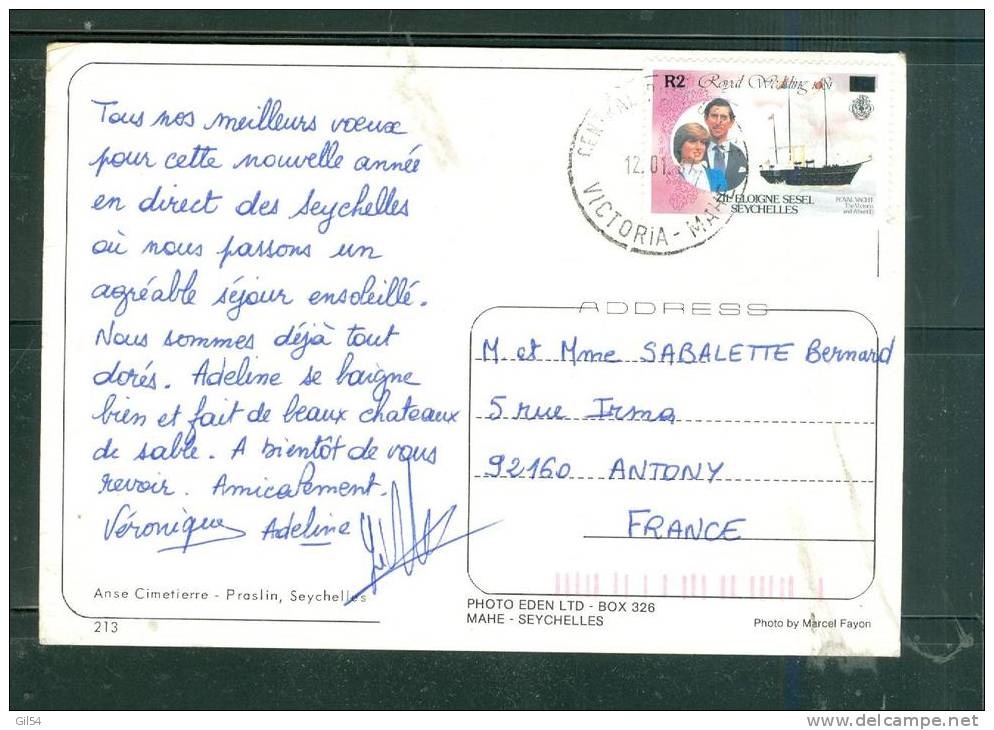 Tous nos meilleurs vœux
pour cette nouvelle année
en direct des Seychelles
où nous passons un
agréable séjour ensoleillé.
Nous sommes déjà tout
dorés. Adeline se baigne
bien et fait de beaux chateaux
de sable. A bientôt de vous
revoir. Amicalement.
Véronique Adeline
Anse Cimetierre - Praslin, Seychelles
213
R2 Royal Wedding 1981
ZIL ELOIGNE SESEL
SEYCHELLES
ROYAL YACHT
The Victoria
and Albert
12.01.
VICTORIA - MAHE
ADDRESS
M. et Mme SABALETTE Bernard
5 rue Irma
92160 ANTONY
FRANCE
PHOTO EDEN LTD - BOX 326
MAHE - SEYCHELLES
Photo by Marcel Fayon
Gil54
www.delcampe.net